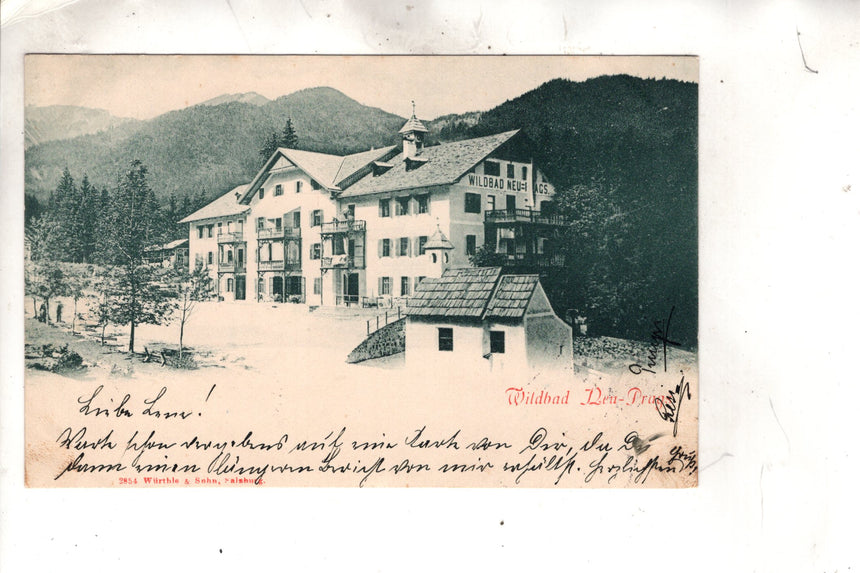 WILDBAD NEU=PRAGS.
Wildbad Neu-Prags
Liebe Lene!
Warte schon vergebens auf eine Karte von Dir, da D
dann einen längeren Bericht von mir erhältst. Herzlichsten
Gruß
2854 Würthle & Sohn, Salzburg.